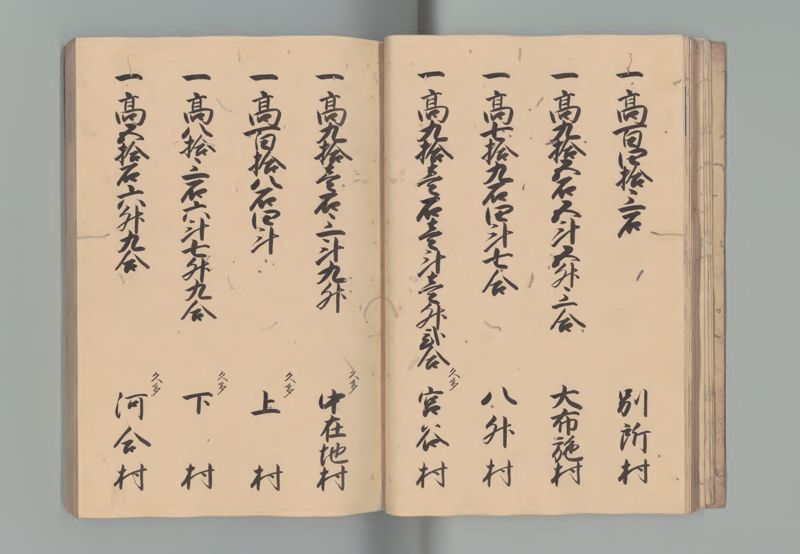 一高百四拾三石 別所村
一高九拾五石五斗五升三合 大布施村
一高七拾九石四斗七合 八升村
一高九拾壱石壱斗壱升弐合 久多 宮谷村
一高九拾壱石三斗九升 久多 中在地村
一高百拾八石四斗 久多 上村
一高八拾三石六斗七升九合 久多 下村
一高五拾石六升九合 久多 河合村